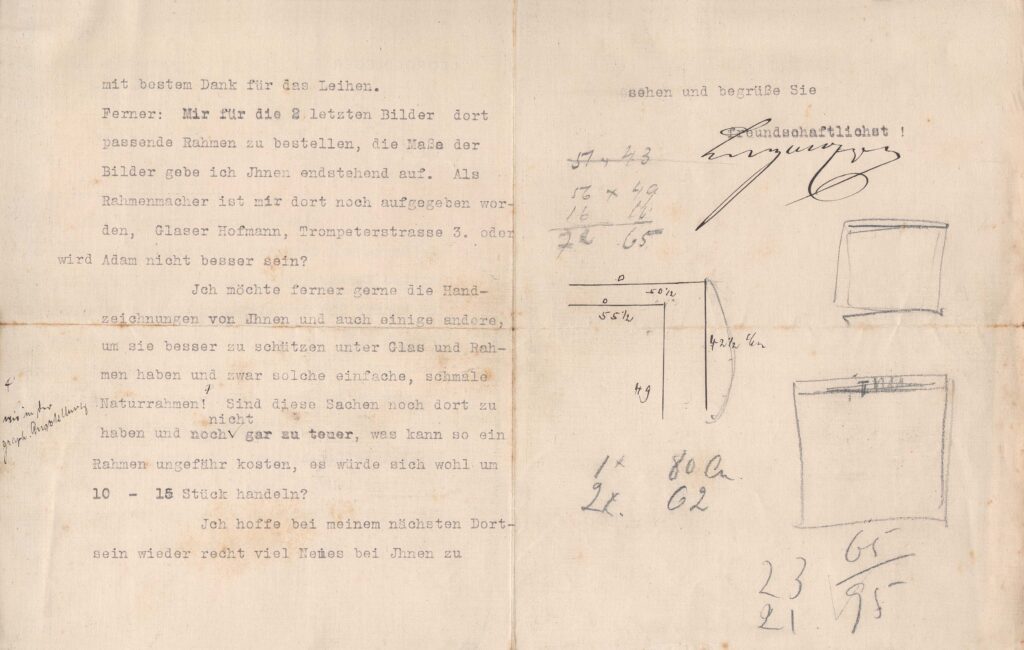 mit bestem Dank für das Leihen.
Ferner: Mir für die 2 letzten Bilder dort
passende Rahmen zu bestellen, die Maße der
Bilder gebe ich Jhnen endstehend auf. Als
Rahmenmacher ist mir dort noch aufgegeben wor-
den, Glaser Hofmann, Trompeterstrasse 3. oder
wird Adam nicht besser sein?
Jch möchte ferner gerne die Hand-
zeichnungen von Jhnen und auch einige andere,
um sie besser zu schätzen unter Glas und Rah-
men haben und zwar solche einfache, schmale
Naturrahmen! Sind diese Sachen noch dort zu
wie in der
graph. Ausstellung
nicht
haben und noch gar zu teuer, was kann so ein
Rahmen ungefähr kosten, es würde sich wohl um
10 - 15 Stück handeln?
Jch hoffe bei meinem nächsten Dort-
sein wieder recht viel Neues bei Jhnen zu
sehen und begrüße Sie
freundschaftlichst !
57 x 43
56 x 49
16 16
72 65
50 1/2
55 1/2
42 1/2 c/m
49
1 x 80 Cm.
2 x. 62
65
23
95
21.